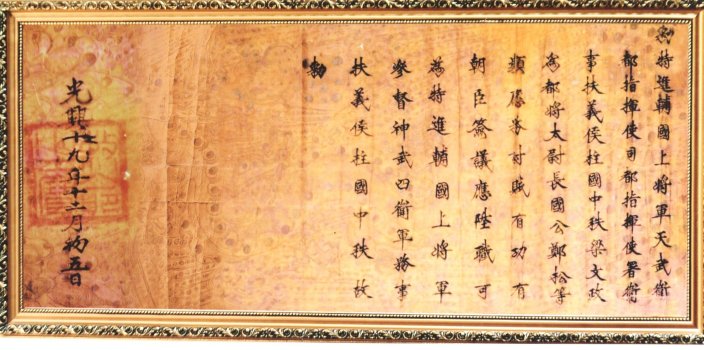 勅特進輔國上將軍天武衛
都指揮使司都指揮使署衛
事扶義侯柱國中秩梁文政
為都將太尉長國公鄭松等
討賊有功有
朝臣簽議應陞職可
為特進輔國上將軍
參督神武四衛軍務事
扶義侯柱國中秩故
勅
光興十九年十二月初五日